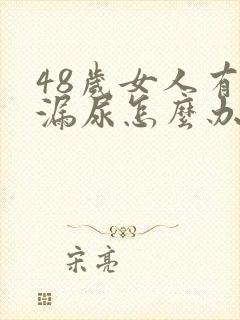 48歲女人有
漏尿怎麼办
宋亮